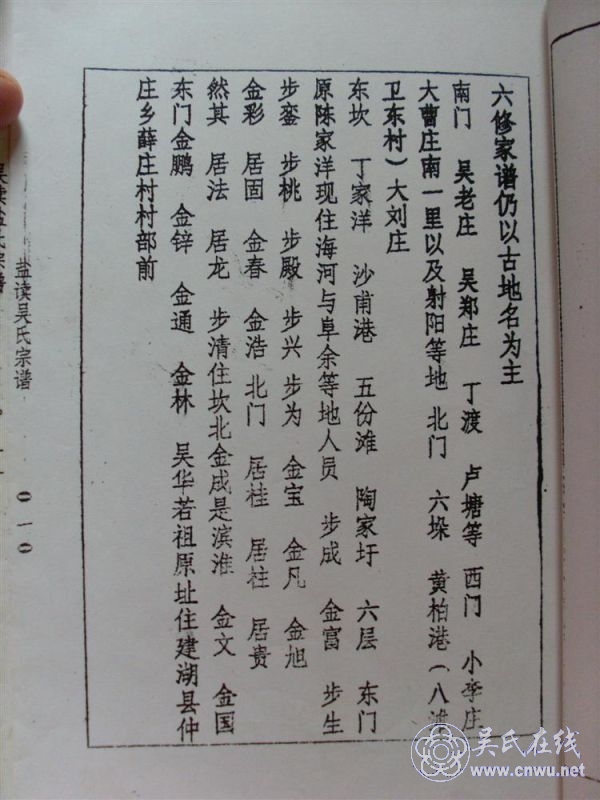 六修家谱仍以古地名为主
南门 吴老庄 吴郑庄 丁渡 卢塘等 西门 小李庄
大曹庄南一里以及射阳等地 北门 六垛 黄柏港（八滩
卫东村）大刘庄
东坎 丁家洋 沙甫港 五份滩 陶家圩 六层 东门
原陈家洋现住海河与阜余等地人员 步成 金富 步生
步銮 步桃 步殿 步兴 步为 金宝 金凡 金旭
金彩 居固 金春 金浩 北门 居桂 居柱 居贵
然其 居法 居龙 步清住坎北金成是滨淮 金文 金国
东门金鹏 金锌 金通 金林 吴华若祖原址住建湖县仲
庄乡薛庄村村部前
盐渎吴氏宗谱
0一0
吴氏在线
www.cnwu.net